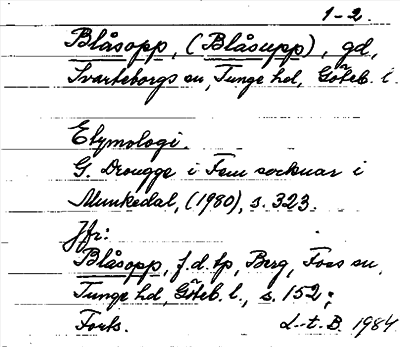 1-2.
Blåsopp, (Blåsupp), gd,
Svarteborgs sn, Tunge hd, Göteb. l.
Etymologi.
G. Drougge i Fem socknar i
Munkedal, (1980), s. 323.
Jfr:
Blåsopp, f.d. tp, Berg, Foss sn,
Tunge hd, Göteb. l., s. 152;
Forts.
L-t. B. 1984